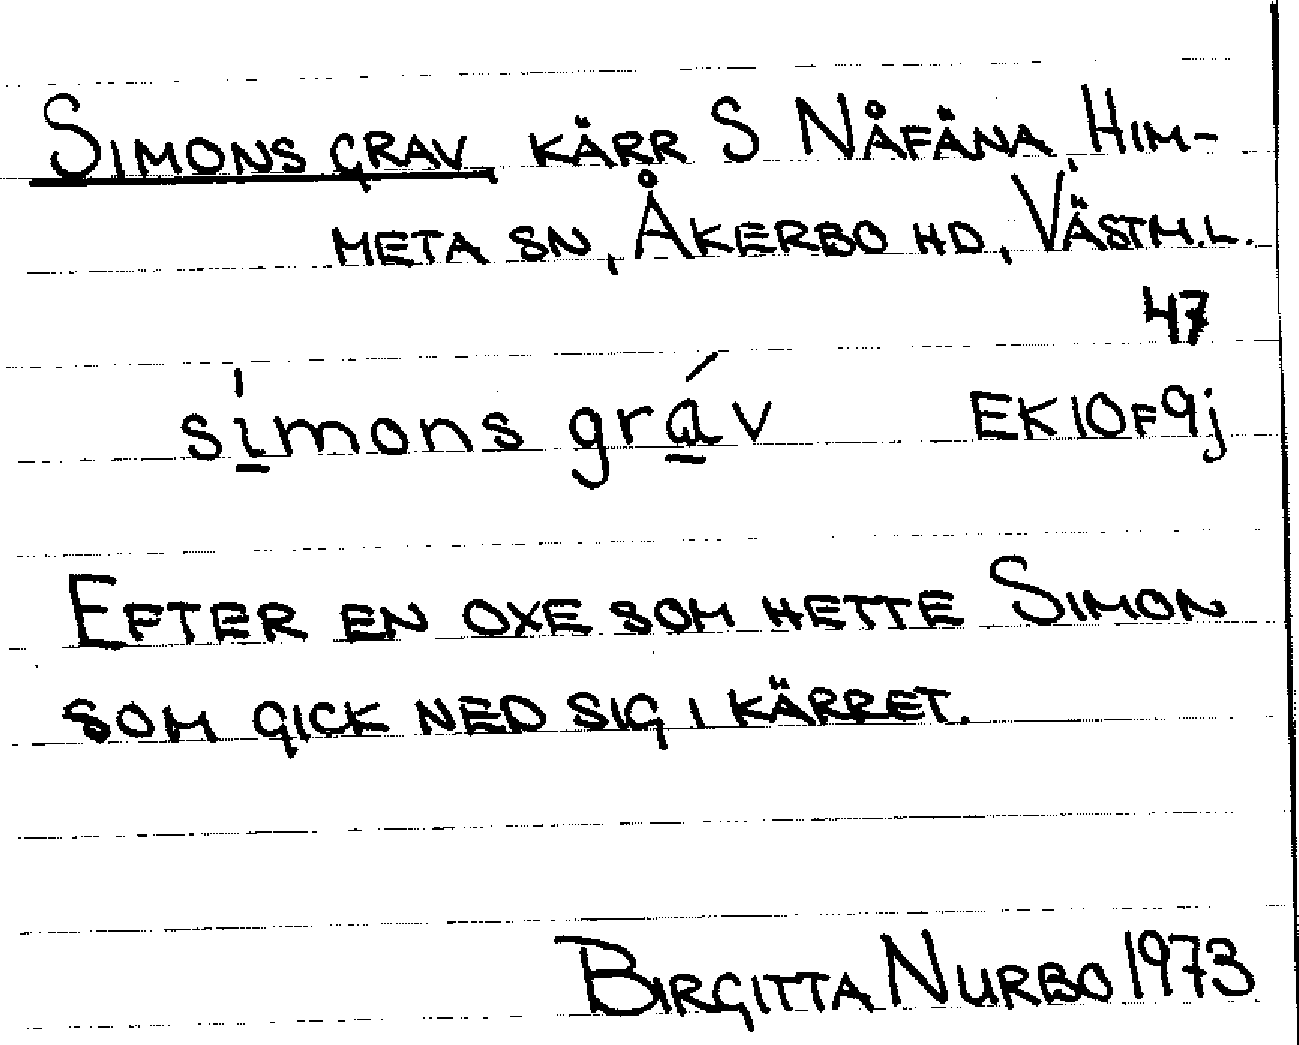 SIMONS GRAV KÄRR S NÅFÄNA, HIM-
META SN, ÅKERBO HD, VÄSTM.L.
47
símons gráv EK10F9j
EFTER EN OXE SOM HETTE SIMON
SOM GICK NED SIG I KÄRRET.
BIRGITTA NURBO 1973